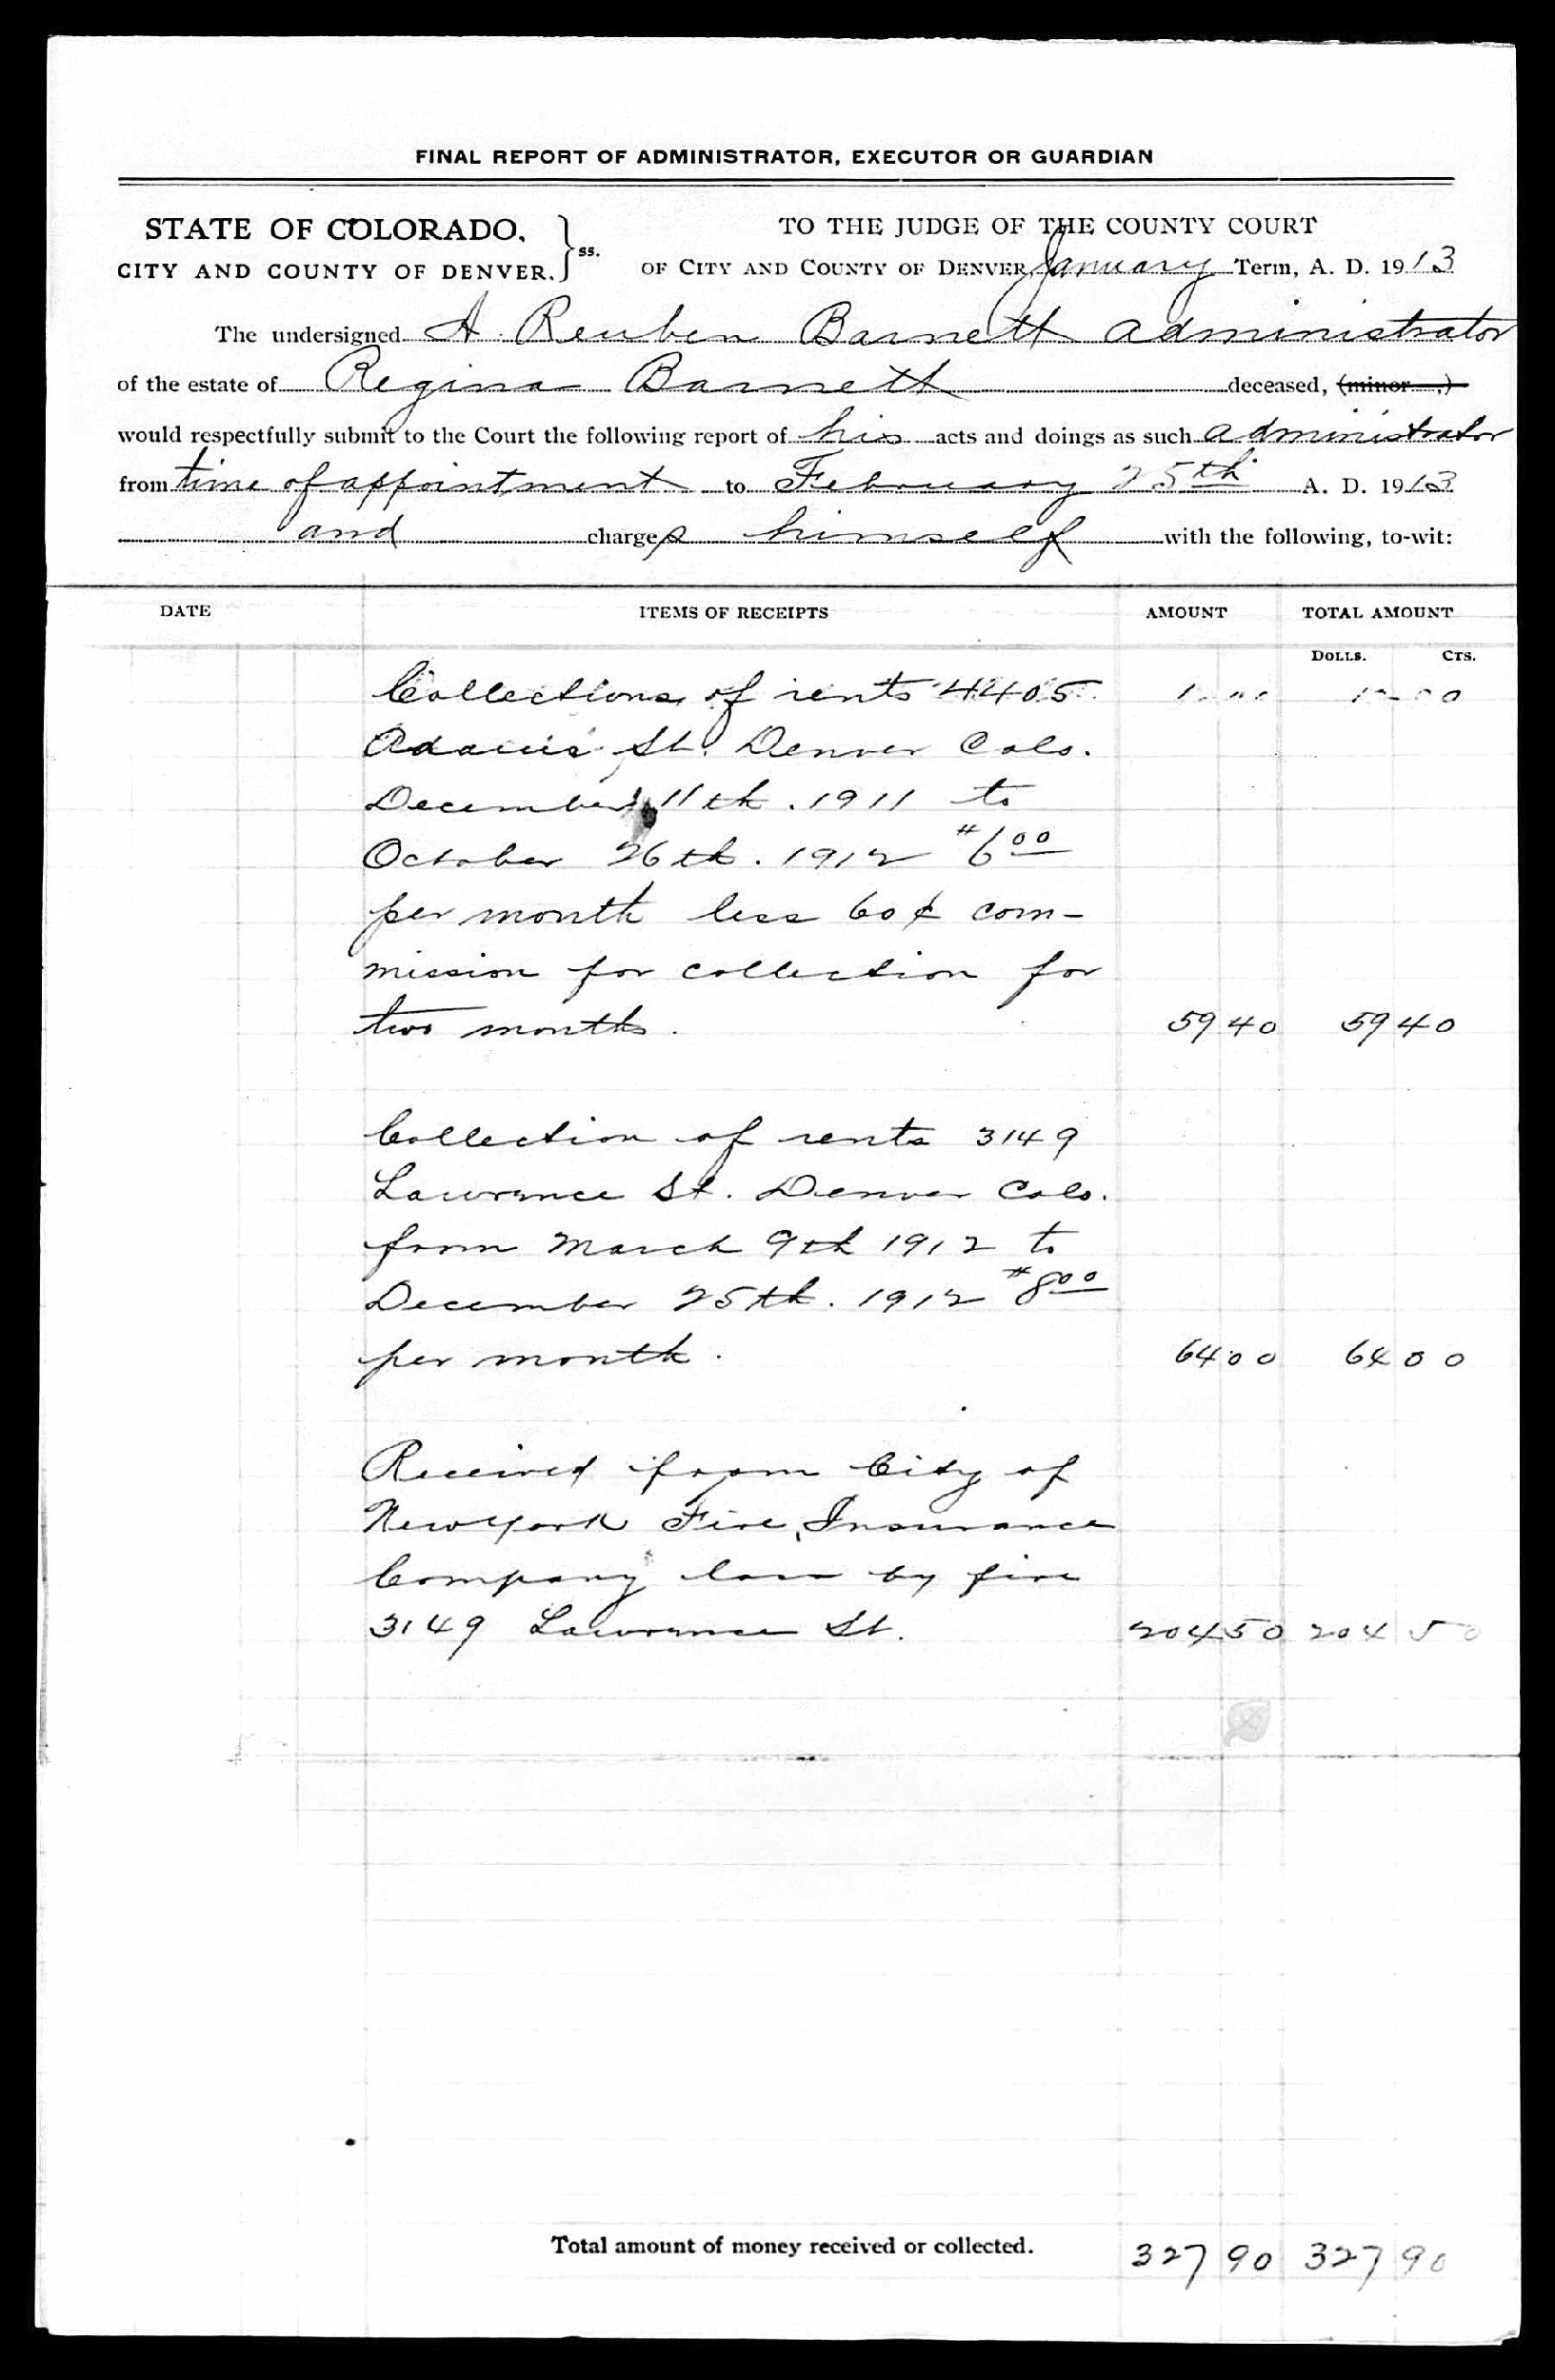 FINAL REPORT OF ADMINISTRATOR, EXECUTOR OR GUARDIAN
STATE OF COLORADO,
CITY AND COUNTY OF DENVER. } ss.
TO THE JUDGE OF THE COUNTY COURT
OF CITY AND COUNTY OF DENVER, January Term, A. D. 1913
The undersigned A. Reuben Barnett administrator
of the estate of Regina Barnett deceased, (minor ,)
would respectfully submit to the Court the following report of his acts and doings as such administrator
from time of appointment to February 25th A. D. 1913
and charges himself with the following, to-wit:
DATE ITEMS OF RECEIPTS AMOUNT TOTAL AMOUNT
DOLLS. CTS.
Collections of rents 4405
Adams St. Denver Colo.
December 11th. 1911 to
October 26th. 1912 $6 00
per month less 60¢ com-
mission for collection for
two months. 59 40 59 40
Collection of rents 3149
Lawrence St. Denver Colo.
from March 9th 1912 to
December 25th. 1912 $8 00
per month. 64 00 64 00
Received from City of
New York Fire Insurance
Company loss by fire
3149 Lawrence St. 204 50 204 50
Total amount of money received or collected. 327 90 327 90